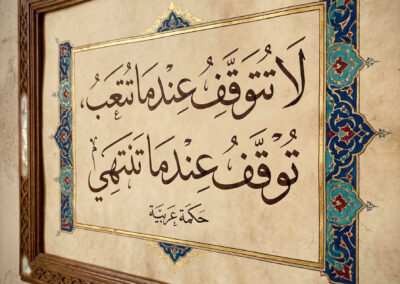 لَا تُتَوَقَّفُ عِنْدَمَا تُتعَبُ،
تُوْقَّفُ عِنْدَمَا تَنْتَهِيْ
حَكمَة عَربيَّة